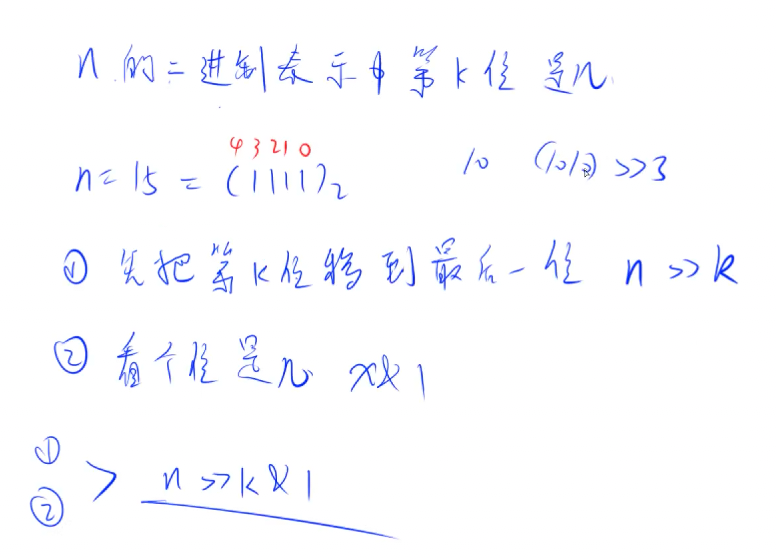 n的二进制表示中第k位是几
4 3 2 1 0
n = 15 = (1111)₂ 10 (1010) >> 3
① 先把第k位移到最后一位 n >> k
② 看个位是几 x & 1
①
② > n >> k & 1